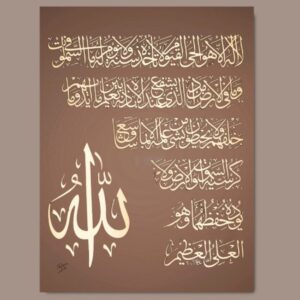 الله لا إله إلا هو الحي القيوم لا تأخذه سنة ولا نوم له ما في السموات
وما في الأرض من ذا الذي يشفع عنده إلا بإذنه يعلم ما بين أيديهم وما
خلفهم ولا يحيطون بشيء من علمه إلا بما شاء وسع
كرسيه السموات والأرض ولا
يؤده حفظهما وهو
العلي العظيم
الله